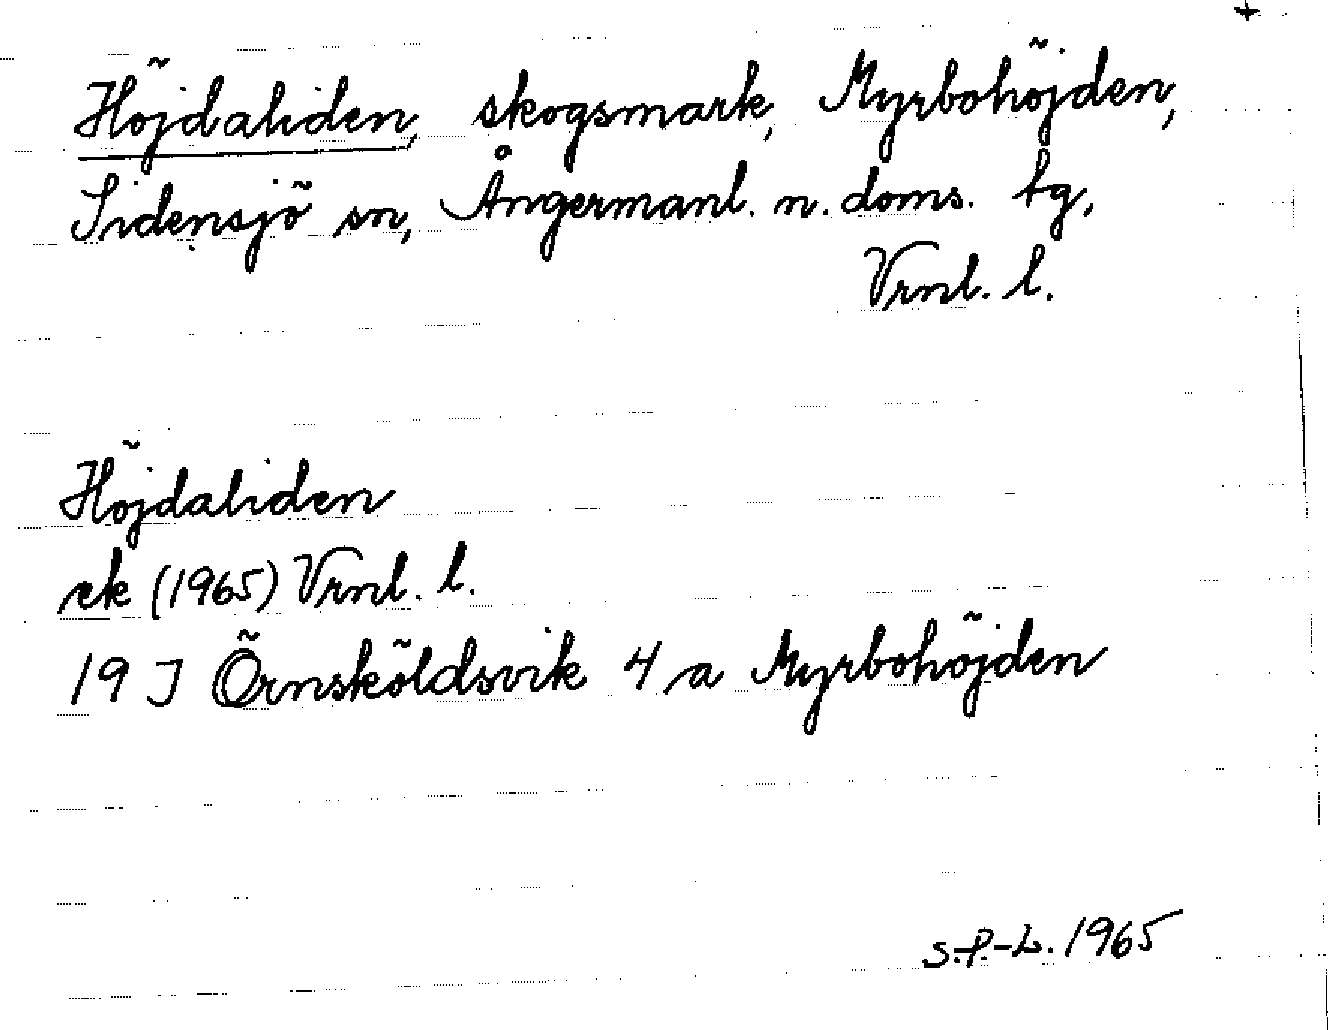 +
Höjdaliden, skogsmark, Myrbohöjden,
Sidensjö sn, Ångermanl. n. doms. tg,
Vrnl. l.
Höjdaliden
ek (1965) Vrnl. l.
19 J Örnsköldsvik 4 a Myrbohöjden
S.P.-L. 1965